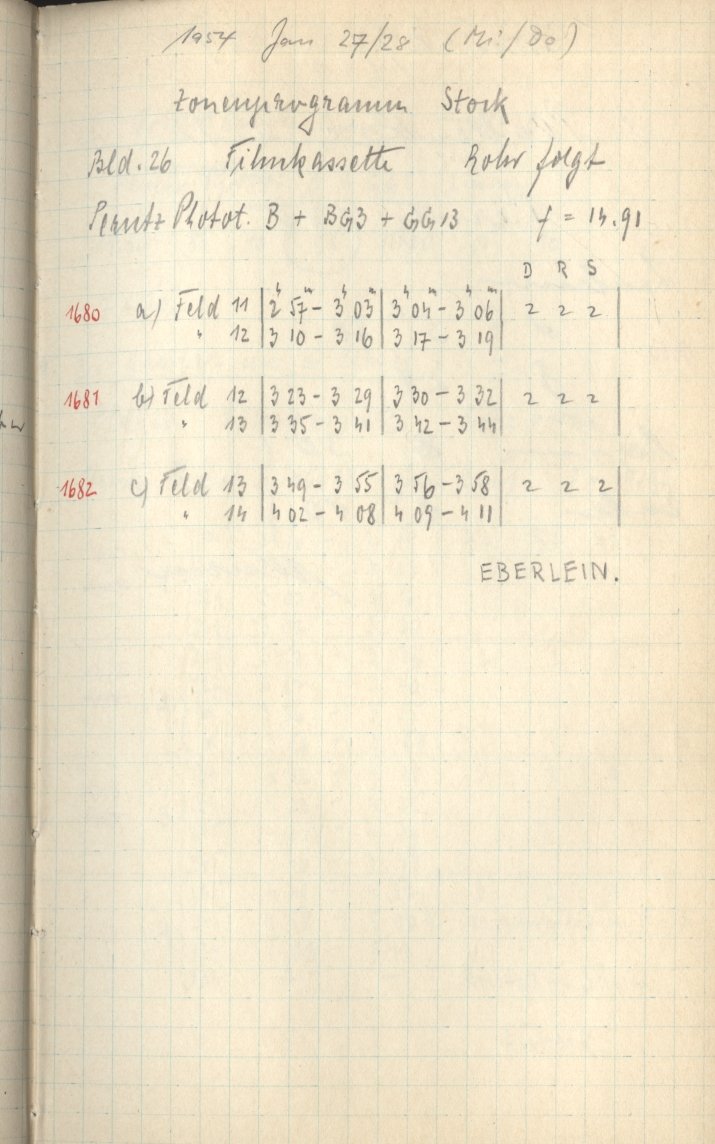 1954 Jan 27/28 (Mi/Do)
Zonenprogramm Stock
Bld. 26 Filmkassette Rohr folgt
Perutz Photot. B + BG3 + GG13 f = 14.91
D R S
1680 a) Feld 11 | 2h 57m - 3h 03m | 3h 04m - 3h 06m | 2 2 2 |
" 12 | 3 10 - 3 16 | 3 17 - 3 19 |
1681 b) Feld 12 | 3 23 - 3 29 | 3 30 - 3 32 | 2 2 2 |
" 13 | 3 35 - 3 41 | 3 42 - 3 44 |
1682 c) Feld 13 | 3 49 - 3 55 | 3 56 - 3 58 | 2 2 2 |
" 14 | 4 02 - 4 08 | 4 09 - 4 11 |
EBERLEIN.